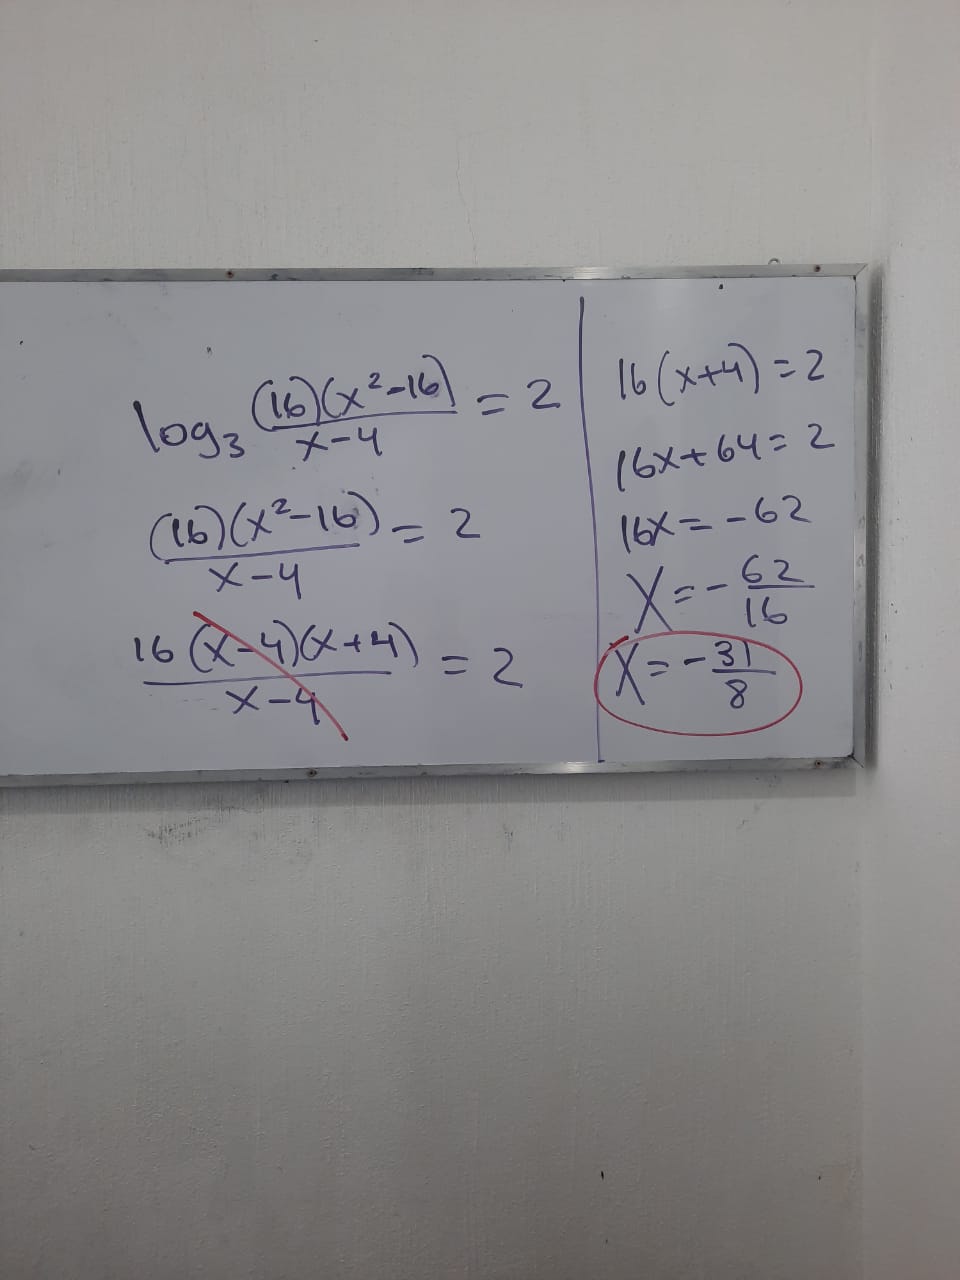 log₃ (16)(x²-16)/x-4 = 2
(16)(x²-16)/x-4 = 2
16(x-4)(x+4)/x-4 = 2
16(x+4)=2
16x+64=2
16x=-62
X=-62/16
X=-31/8